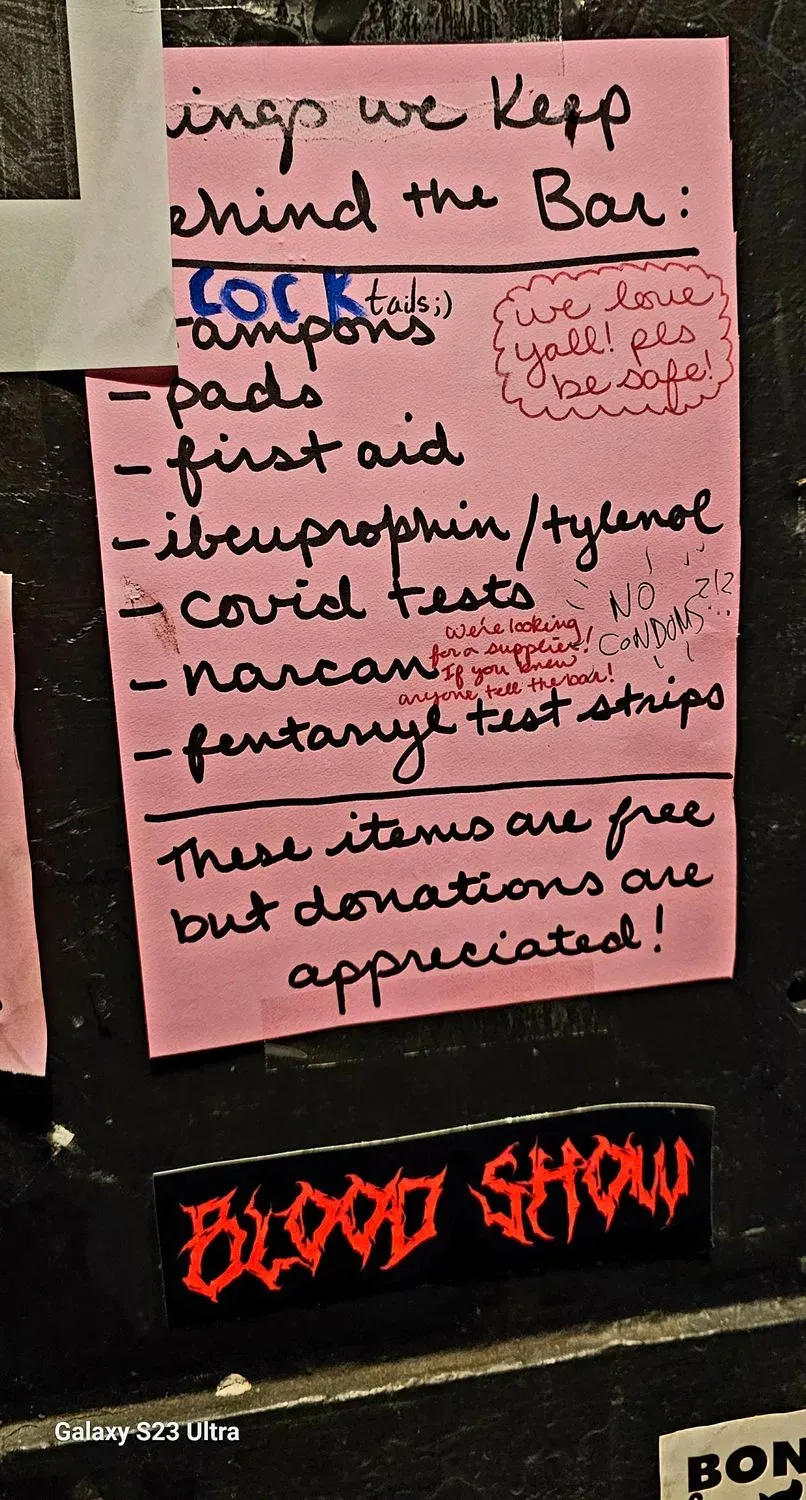 ings we Keep
ehind the Bar:
COCK tails;)
tampons
we love
yall! pls
be safe!
- pads
- first aid
- ibeuprophin/tylenol
- covid tests
NO
CONDOMS?!?
- narcan
we're looking
for a supplier!
If you know
anyone tell the bar!
- fentanyl test strips
These items are free
but donations are
appreciated!
BLOOD SHOW
Galaxy S23 Ultra
BON